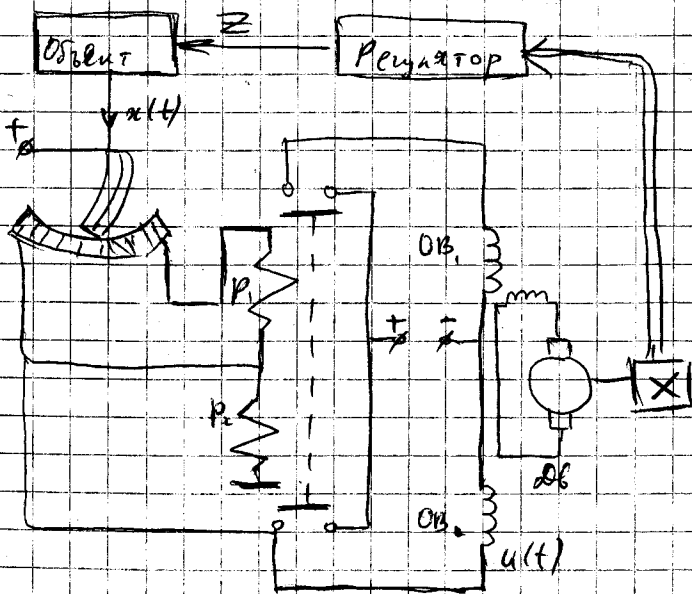 Объект
Z
Регулятор
x(t)
+
P₁
ОВ₁
+ -
P₂
X
Дв
ОВ₂
u(t)